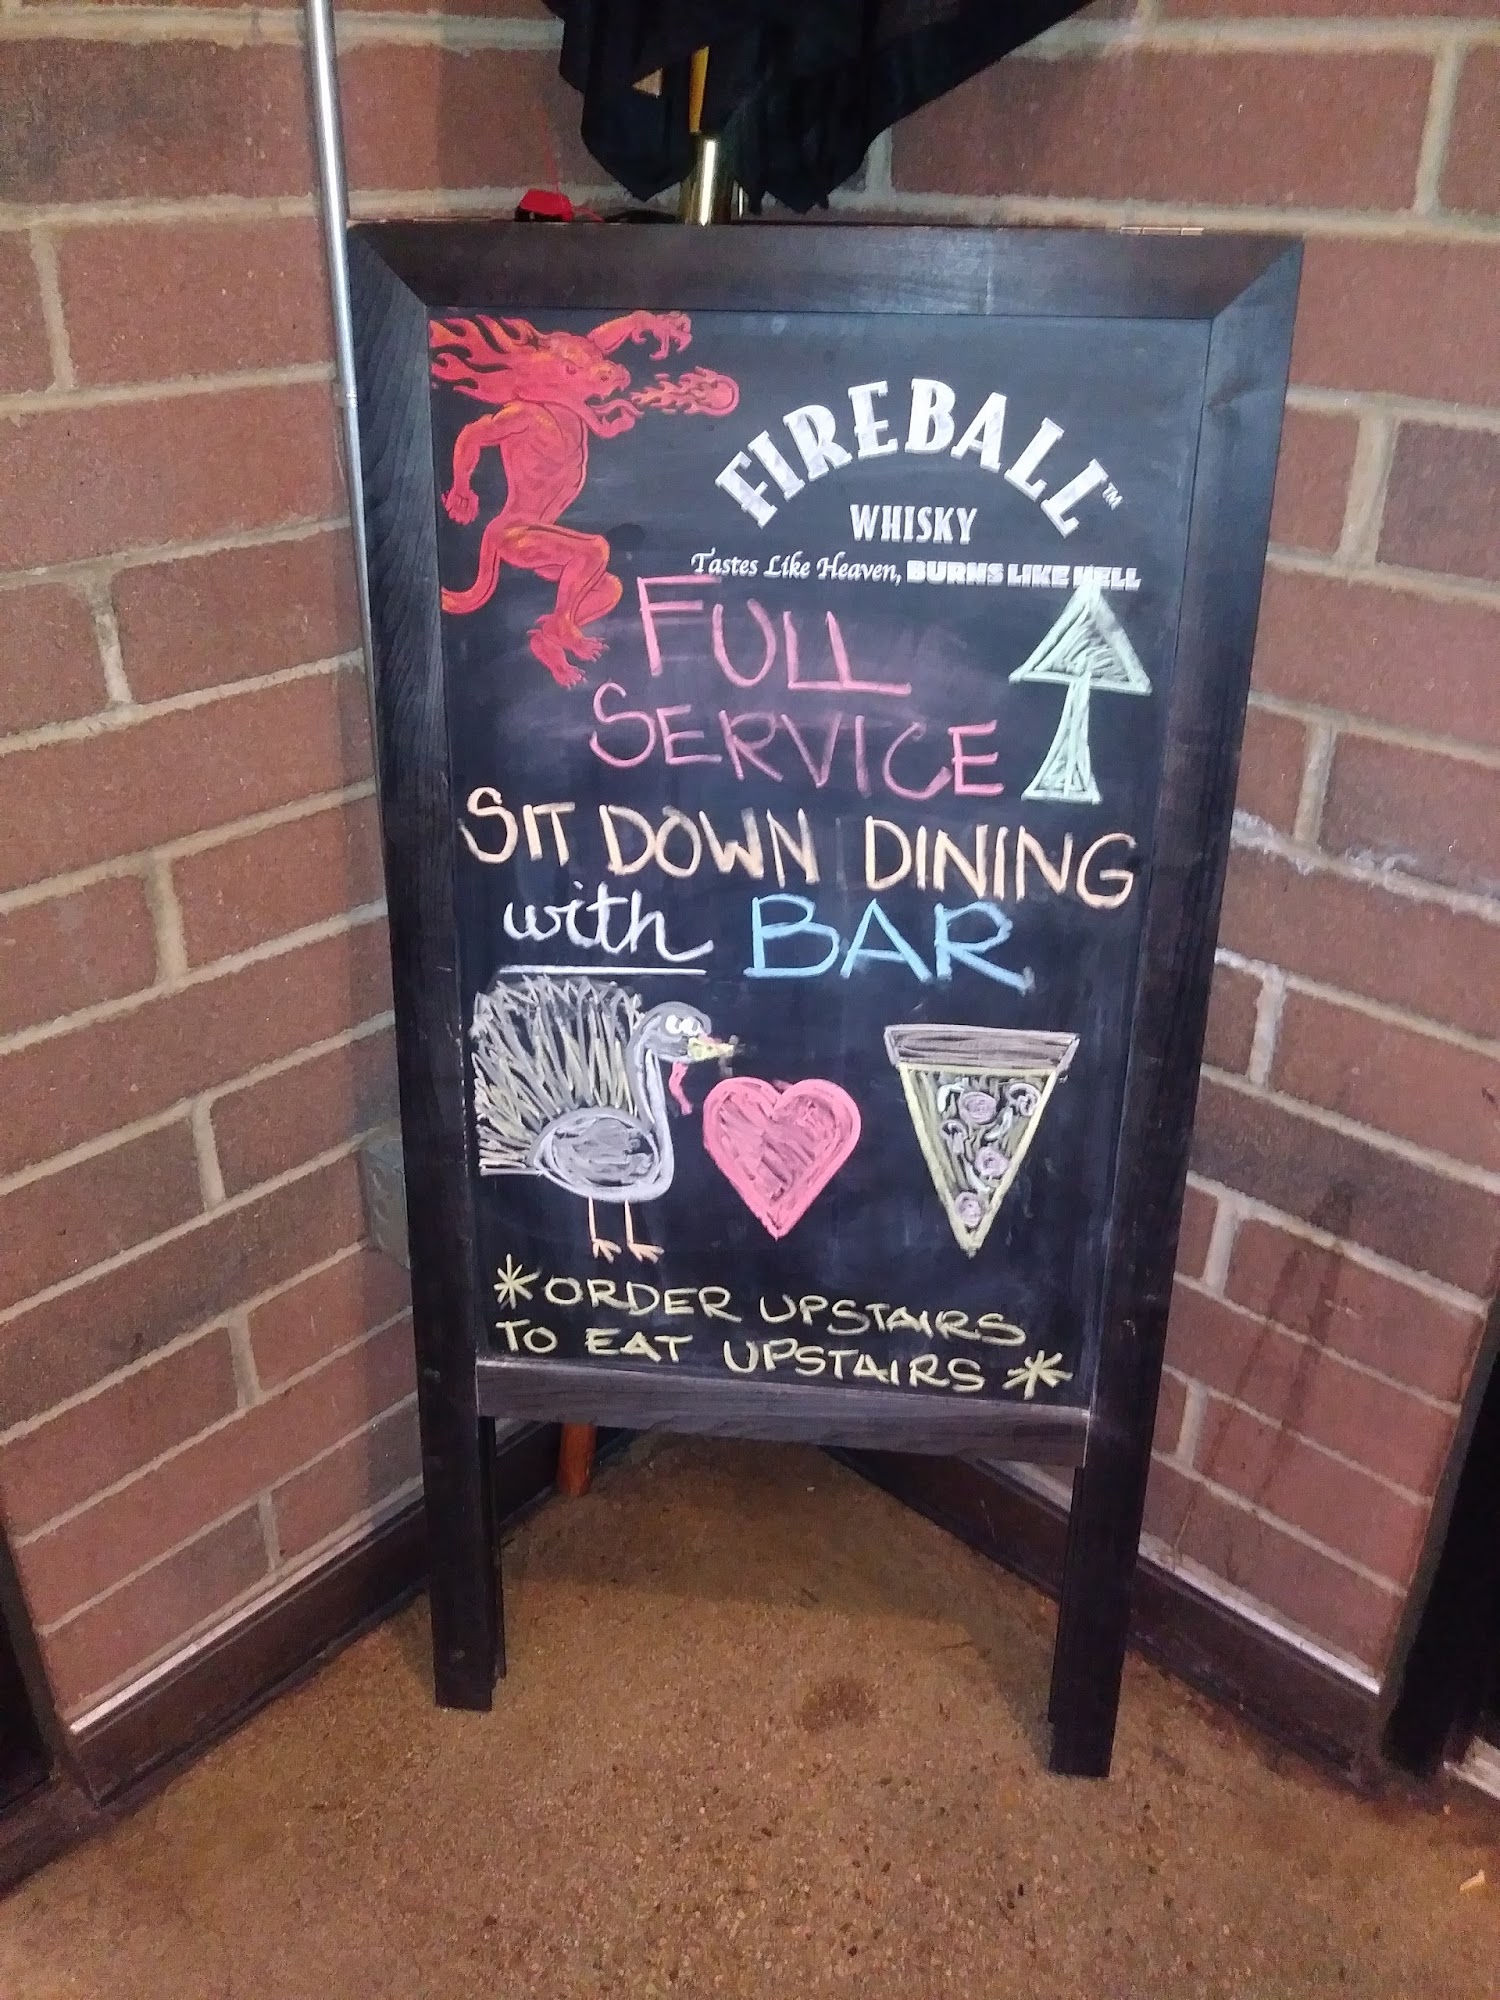 FIREBALL™
WHISKY
Tastes Like Heaven, BURNS LIKE HELL
FULL
SERVICE
SIT DOWN DINING
with BAR
*ORDER UPSTAIRS
TO EAT UPSTAIRS*